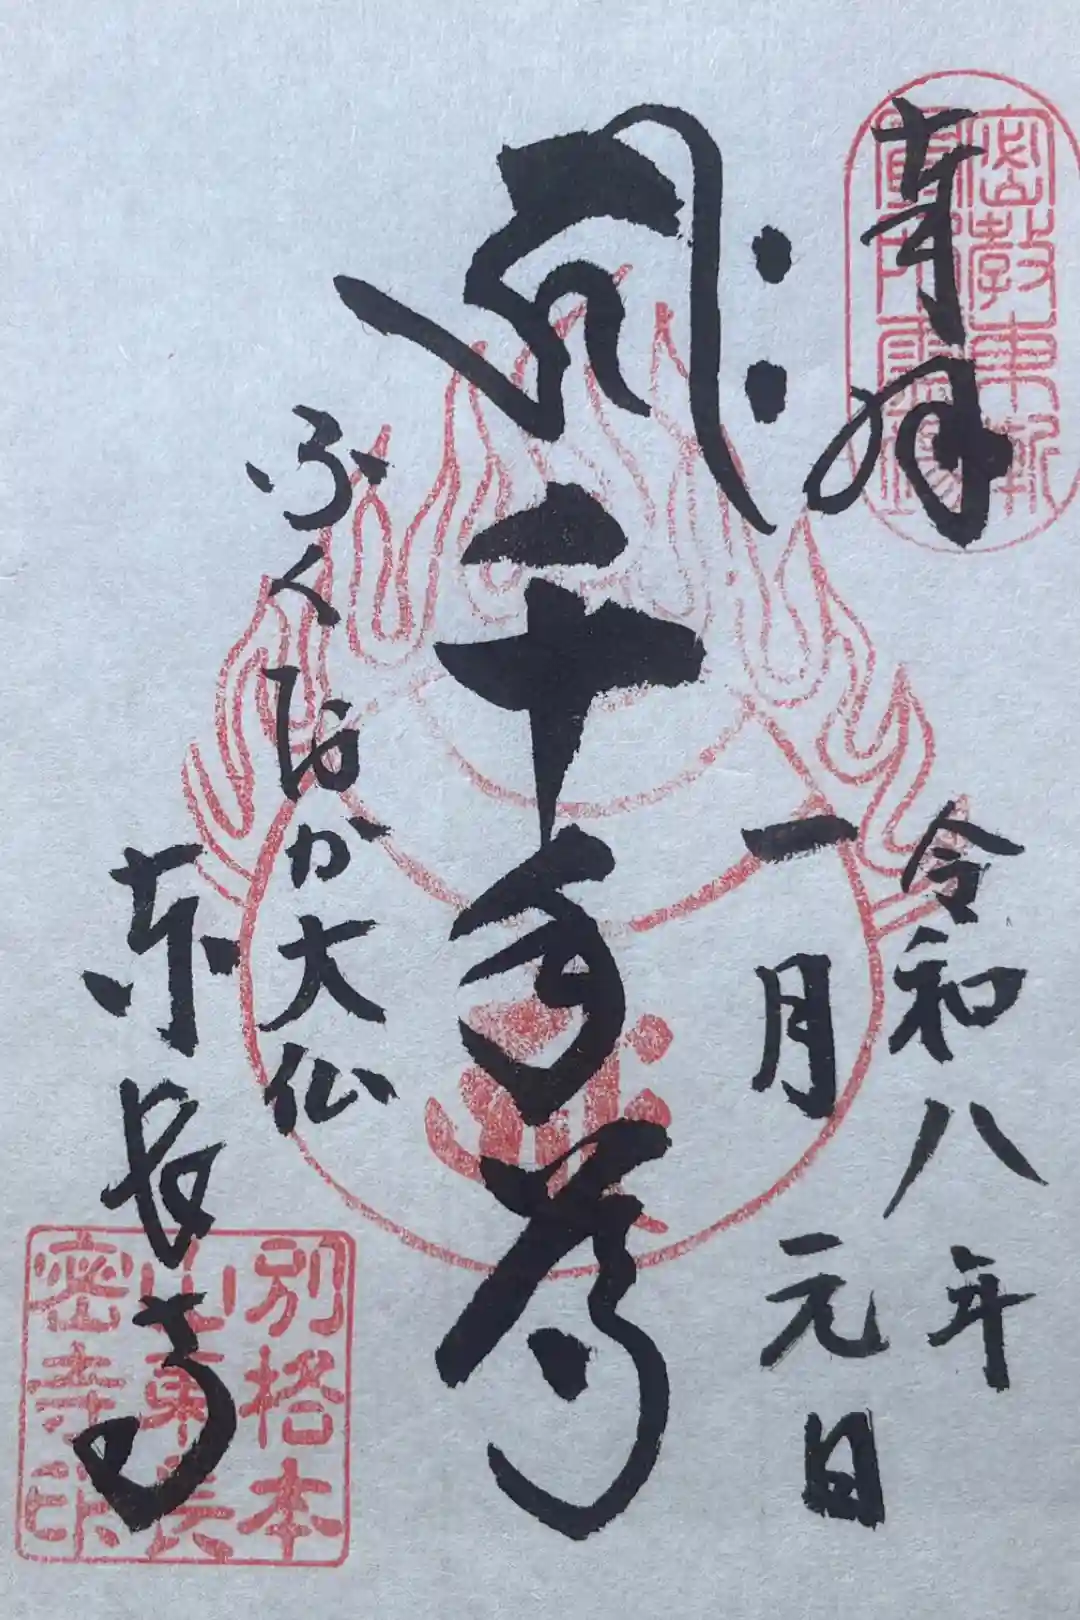 奉拝
密教東漸
令和八年
一月元日
千手尊
ふくおか大仏
東長寺
別格本
山東長
密寺印